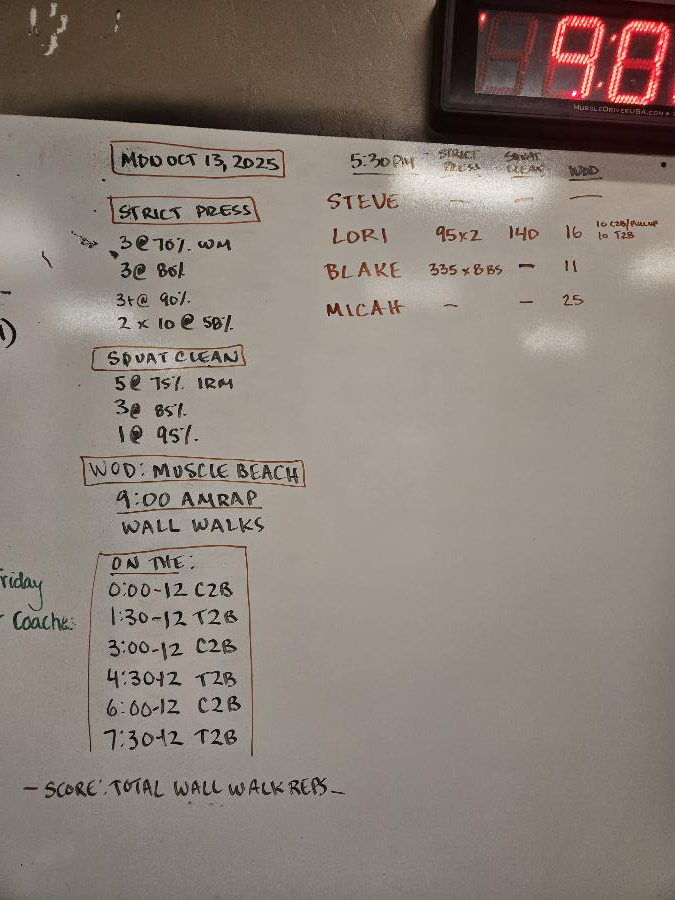 9:0
MUSCLEDRIVERUSA.COM
MON OCT 13, 2025
STRICT PRESS
3 @ 70% WM
3 @ 80%
3+ @ 90%
2 x 10 @ 50%
SQUAT CLEAN
5 @ 75% 1RM
3 @ 85%
1 @ 95%
WOD: MUSCLE BEACH
9:00 AMRAP
WALL WALKS
ON THE:
0:00-12 C2B
1:30-12 T2B
3:00-12 C2B
4:30-12 T2B
6:00-12 C2B
7:30-12 T2B
- SCORE: TOTAL WALL WALK REPS -
5:30 PM STRICT PRESS SQUAT CLEAN WOD
STEVE - - -
LORI 95x2 140 16 10 C2B/PULLUP 10 T2B
BLAKE 335 x 8 BS - 11
MICAH - - 25
riday
Coaches